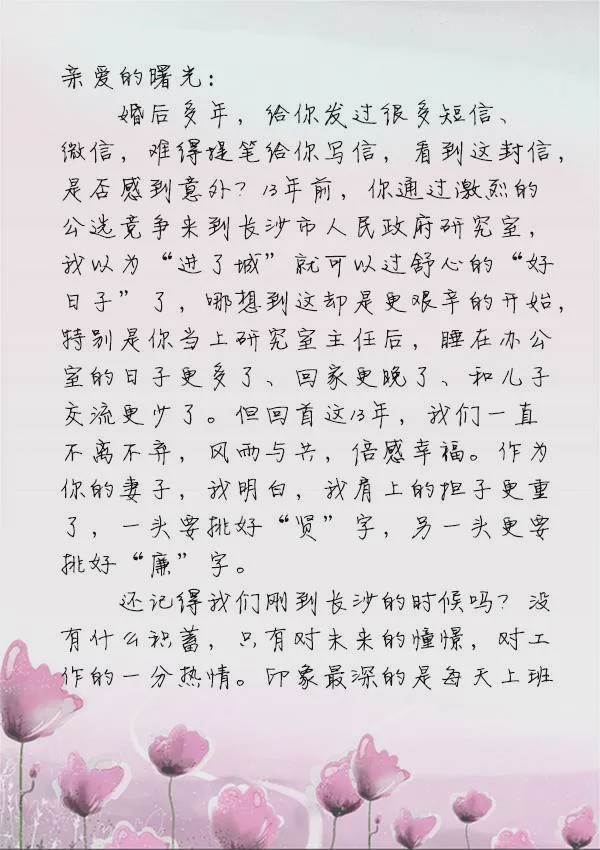 亲爱的曙光：
婚后多年，给你发过很多短信、
微信，难得提笔给你写信，看到这封信，
是否感到意外？13年前，你通过激烈的
公选竞争来到长沙市人民政府研究室，
我以为“进了城”就可以过舒心的“好
日子”了，哪想到这却是更艰辛的开始，
特别是你当上研究室主任后，睡在办公
室的日子更多了、回家更晚了、和儿子
交流更少了。但回首这13年，我们一直
不离不弃，风雨与共，倍感幸福。作为
你的妻子，我明白，我肩上的担子更重
了，一头要挑好“贤”字，另一头更要
挑好“廉”字。
还记得我们刚到长沙的时候吗？没
有什么积蓄，只有对未来的憧憬，对工
作的一分热情。印象最深的是每天上班